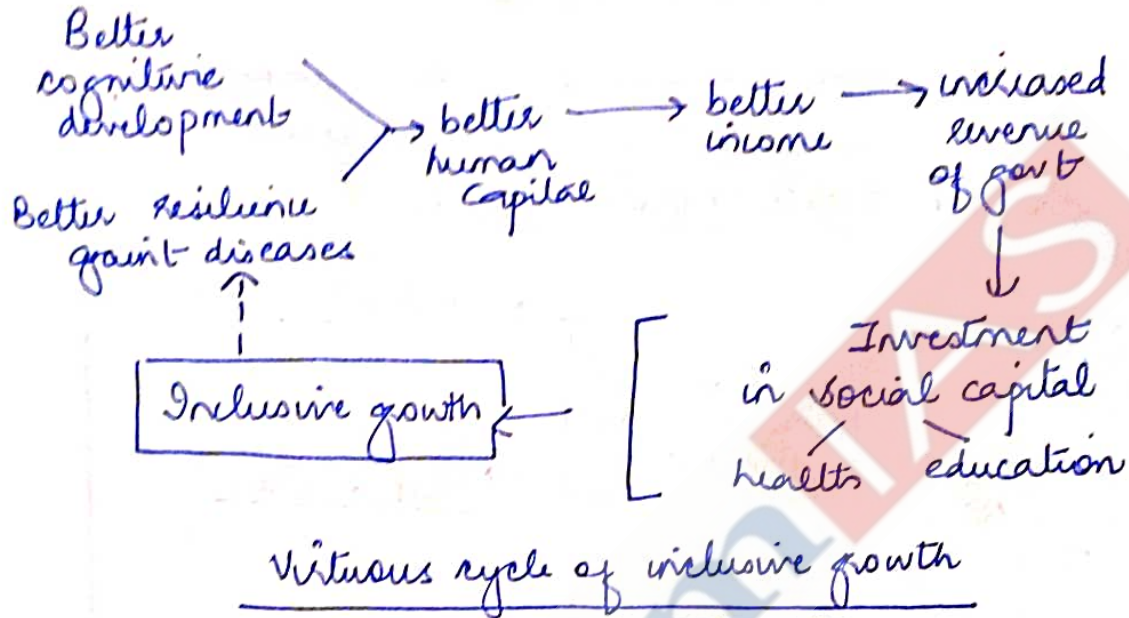 Better
cognitive
development
Better resilience
gainst diseases
better
human
capital
better
income
increased
revenue
of govt
Investment
in social capital
health education
Inclusive growth
Virtuous cycle of inclusive growth
IAS